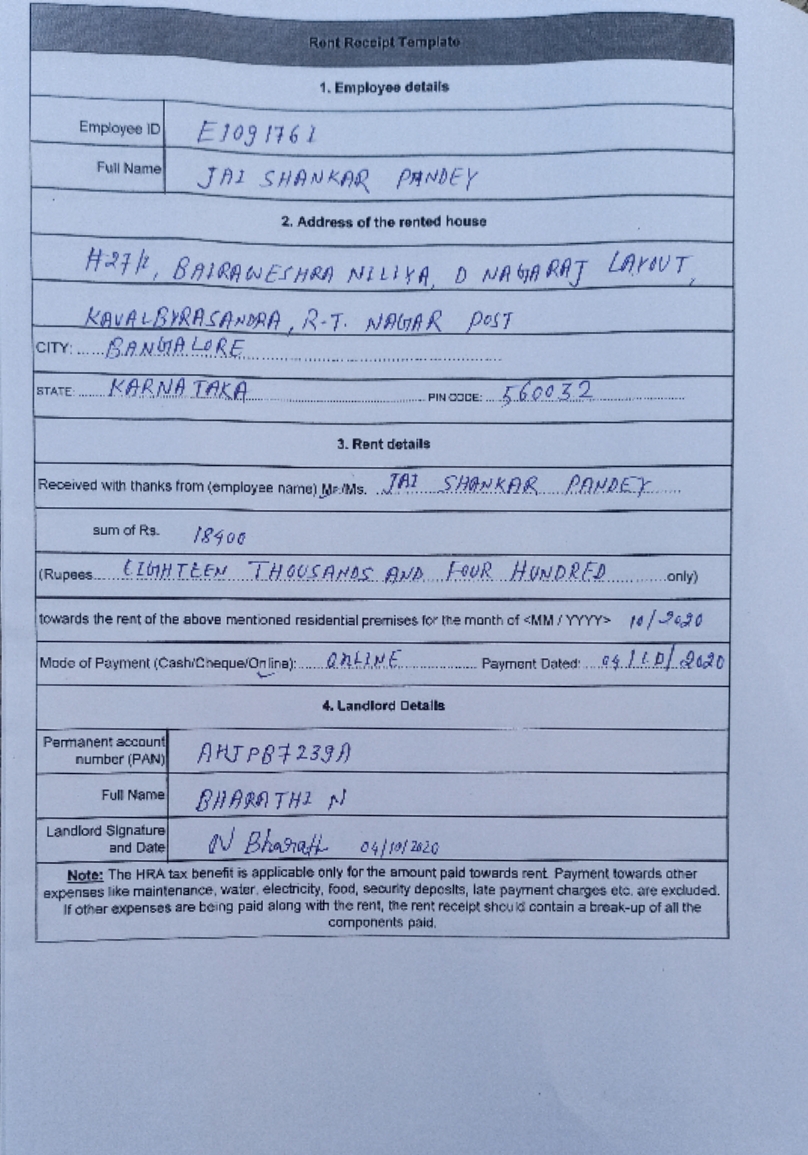 Rent Receipt Template
1. Employee details
Employee ID E1091761
Full Name JAI SHANKAR PANDEY
2. Address of the rented house
#27/1, BAIRAWESHRA NILIYA, D NAGARAJ LAYOUT,
KAVALBYRASANDRA, R.T. NAGAR POST
CITY: BANGALORE
STATE: KARNATAKA PIN CODE: 560032
3. Rent details
Received with thanks from (employee name) Mr./Ms. JAI SHANKAR PANDEY
sum of Rs. 18400
(Rupees EIGHTEEN THOUSANDS AND FOUR HUNDRED only)
towards the rent of the above mentioned residential premises for the month of <MM / YYYY> 10/2020
Mode of Payment (Cash/Cheque/Online): ONLINE Payment Dated: 04/10/2020
4. Landlord Details
Permanent account
number (PAN) AHJPB7239A
Full Name BHARATHI N
Landlord Signature
and Date N Bharathi 04/10/2020
Note: The HRA tax benefit is applicable only for the amount paid towards rent. Payment towards other
expenses like maintenance, water, electricity, food, security deposits, late payment charges etc. are excluded.
If other expenses are being paid along with the rent, the rent receipt should contain a break-up of all the
components paid.